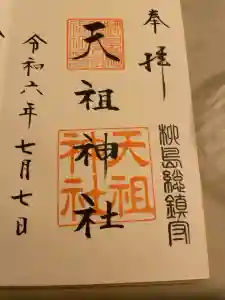 奉拝
柳島総鎮守
天祖神社
天祖神社
令和六年七月七日